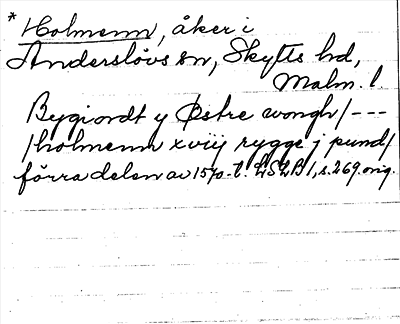 * Holmenn, åker i
Anderslövs sn, Skytts hd,
Malm. l.
Bygiordt y Østre wongh/ ---
/holmenn xviij rygge j pund/
förra delen av 1570-t. LSLB 1, s. 269. orig.